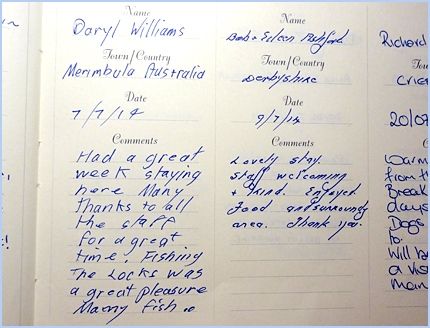 Name
Daryl Williams
Town/Country
Merimbula Australia
Date
7/7/14
Comments
Had a great
week staying
here Many
thanks to all
the staff
for a great
time. Fishing
The Locks was
a great pleasure
Many fish
Name
Bob + Eileen
Town/Country
Derbyshire
Date
9/7/14
Comments
Lovely stay.
Staff welcoming
+ kind. Enjoyed
Food and surrounds
area. Thank you.
Richard
20/07
Warm
from t
Break
days
Dogs
to.
Will
a vis